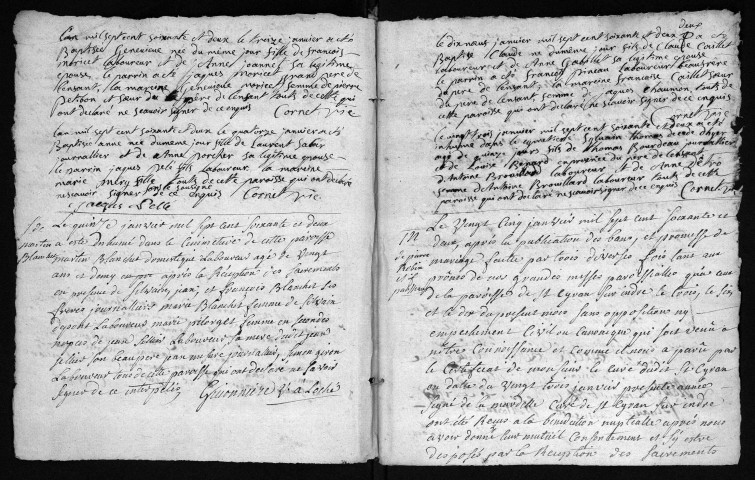 Lan mil sept cent soixante et deux le treize janvier a eté
Baptisée Genevieve née du même jour fille de francois
moricet laboureur et de Anne joannet sa legitime
epouse le parrin a eté jaques moricet grand pere de
lensant la marine Genevieve moricet femme de pierre
petion et sœur du pere de lensant touts de cette
ont declaré ne scavoir signer de ce enquis qui
Cornet Vic
Lan mil sept cent soixante et deux le quatorze janvier a eté
Baptisé anne née du meme jour fille de Laurent Sabar
journallier et de Anne porcher sa legitime epouse
le parrin jaques pele fils laboureur la marine
marie mery fille touts de cette paroisse qui ont declaré
ne scavoir signer sauf le souligné
de ce enquis Cornet Vic
jacques Pelle
Le quinse janvier mil sept cent soixante et deux
martin a esté Inhumé dans le Cimmetiere de cette paroisse
Blanchet martin Blanchet domestique Laboureur agé de Vingt
ans et demy apres la Reception des sacrements
en presence de Silvain, jean, et francois Blanchet ses
freres journaliers marie Blanchet femme de Silvain
Laboureur marie femme en secondes
nopces de jean Laboureur sa mere dudit jean
son beaupere par
Laboureur tous de cette paroisse qui ont declaré ne scavoir
signer de ce interpellés
deux
Le dix neuf janvier mil sept cent soixante et deux a eté
Baptisé Claude né du même jour fils de Claude Caillet
Laboureur et de Anne Gabillet sa legitime epouse
le parrin a eté francois Pineau laboureur beaufrere
du pere de lensant, la marine francoise Caillet sœur
du pere de lensant femme de jaques Chaumon touts de
cette paroisse qui ont declaré ne scavoir signer de ce enquis
Cornet Vic
Le vingt trois janvier mil sept cent soixante et deux a eté
inhumé dans le cymetiere Sylvain thomas decedé dhyer
agé de quinze ans fils de thomas Bourdeau journallier
et de Louise Benard en presence du pere de lensant
dAntoine Brouillard laboureur et de Anne Petro
femme de Antoine Brouillard laboureur touts de cette
paroisse qui ont declaré ne scavoir signer de ce enquis
Cornet Vic
M Le Vingt Cinq janvier mil sept cent soixante et
deux, apres la publication des bans, et promesse de
mariage faitte par trois diverses fois tant aux
prônes de nos grandes messes paroissialles que aux
de la paroisse de St Cyran sur indre le trois, le six
et le dix du present mois sans opposition ny
empeschement Civil ou Canonique qui soit venu à
nôtre Connoissance et Comme il nous a parû par
le Certificat de monsieur le Curé dudit St Cyran
en datte du Vingt trois janvier presente année
signé de la mardelle Curé de St Cyran sur indre
ont été Reçus a la benediction nuptialle apres nous
avoir donné leur mutuel Consentement et s'y estre
disposés par la Reception des sacrements